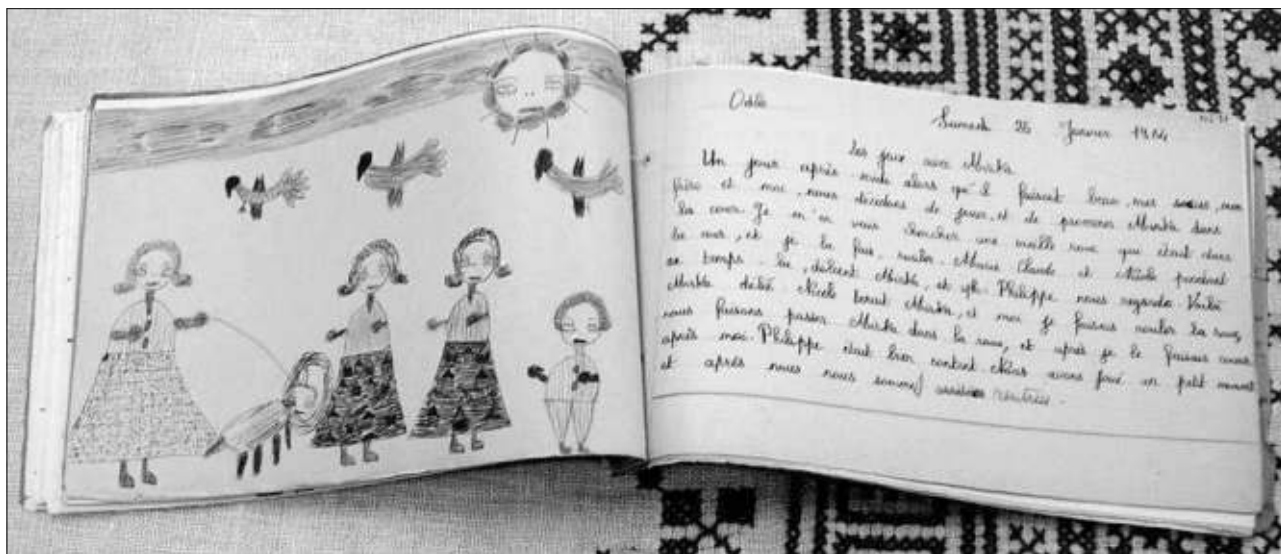 Odile
Samedi 25 Janvier 1964
Les jeux avec Mirka
Un jour après midi alors qu'il faisait beau, mes sœurs, mon
frère et moi, nous décidons de jouer, et de promener Mirka dans
la cour. Je m'en vais chercher une vieille roue qui était dans
la cour, et je la fais rouler. Marie Claude et Nicole pendant
ce temps-là, délient Mirka, et Philippe nous regarde. Voilà
Mirka délié Nicole tenait Mirka, et moi je faisais rouler la roue,
nous faisons passer Mirka dans la roue, et après je le faisais courir
après moi. Philippe était bien content. Nous avons joué un petit moment
et après nous nous sommes rentrés.